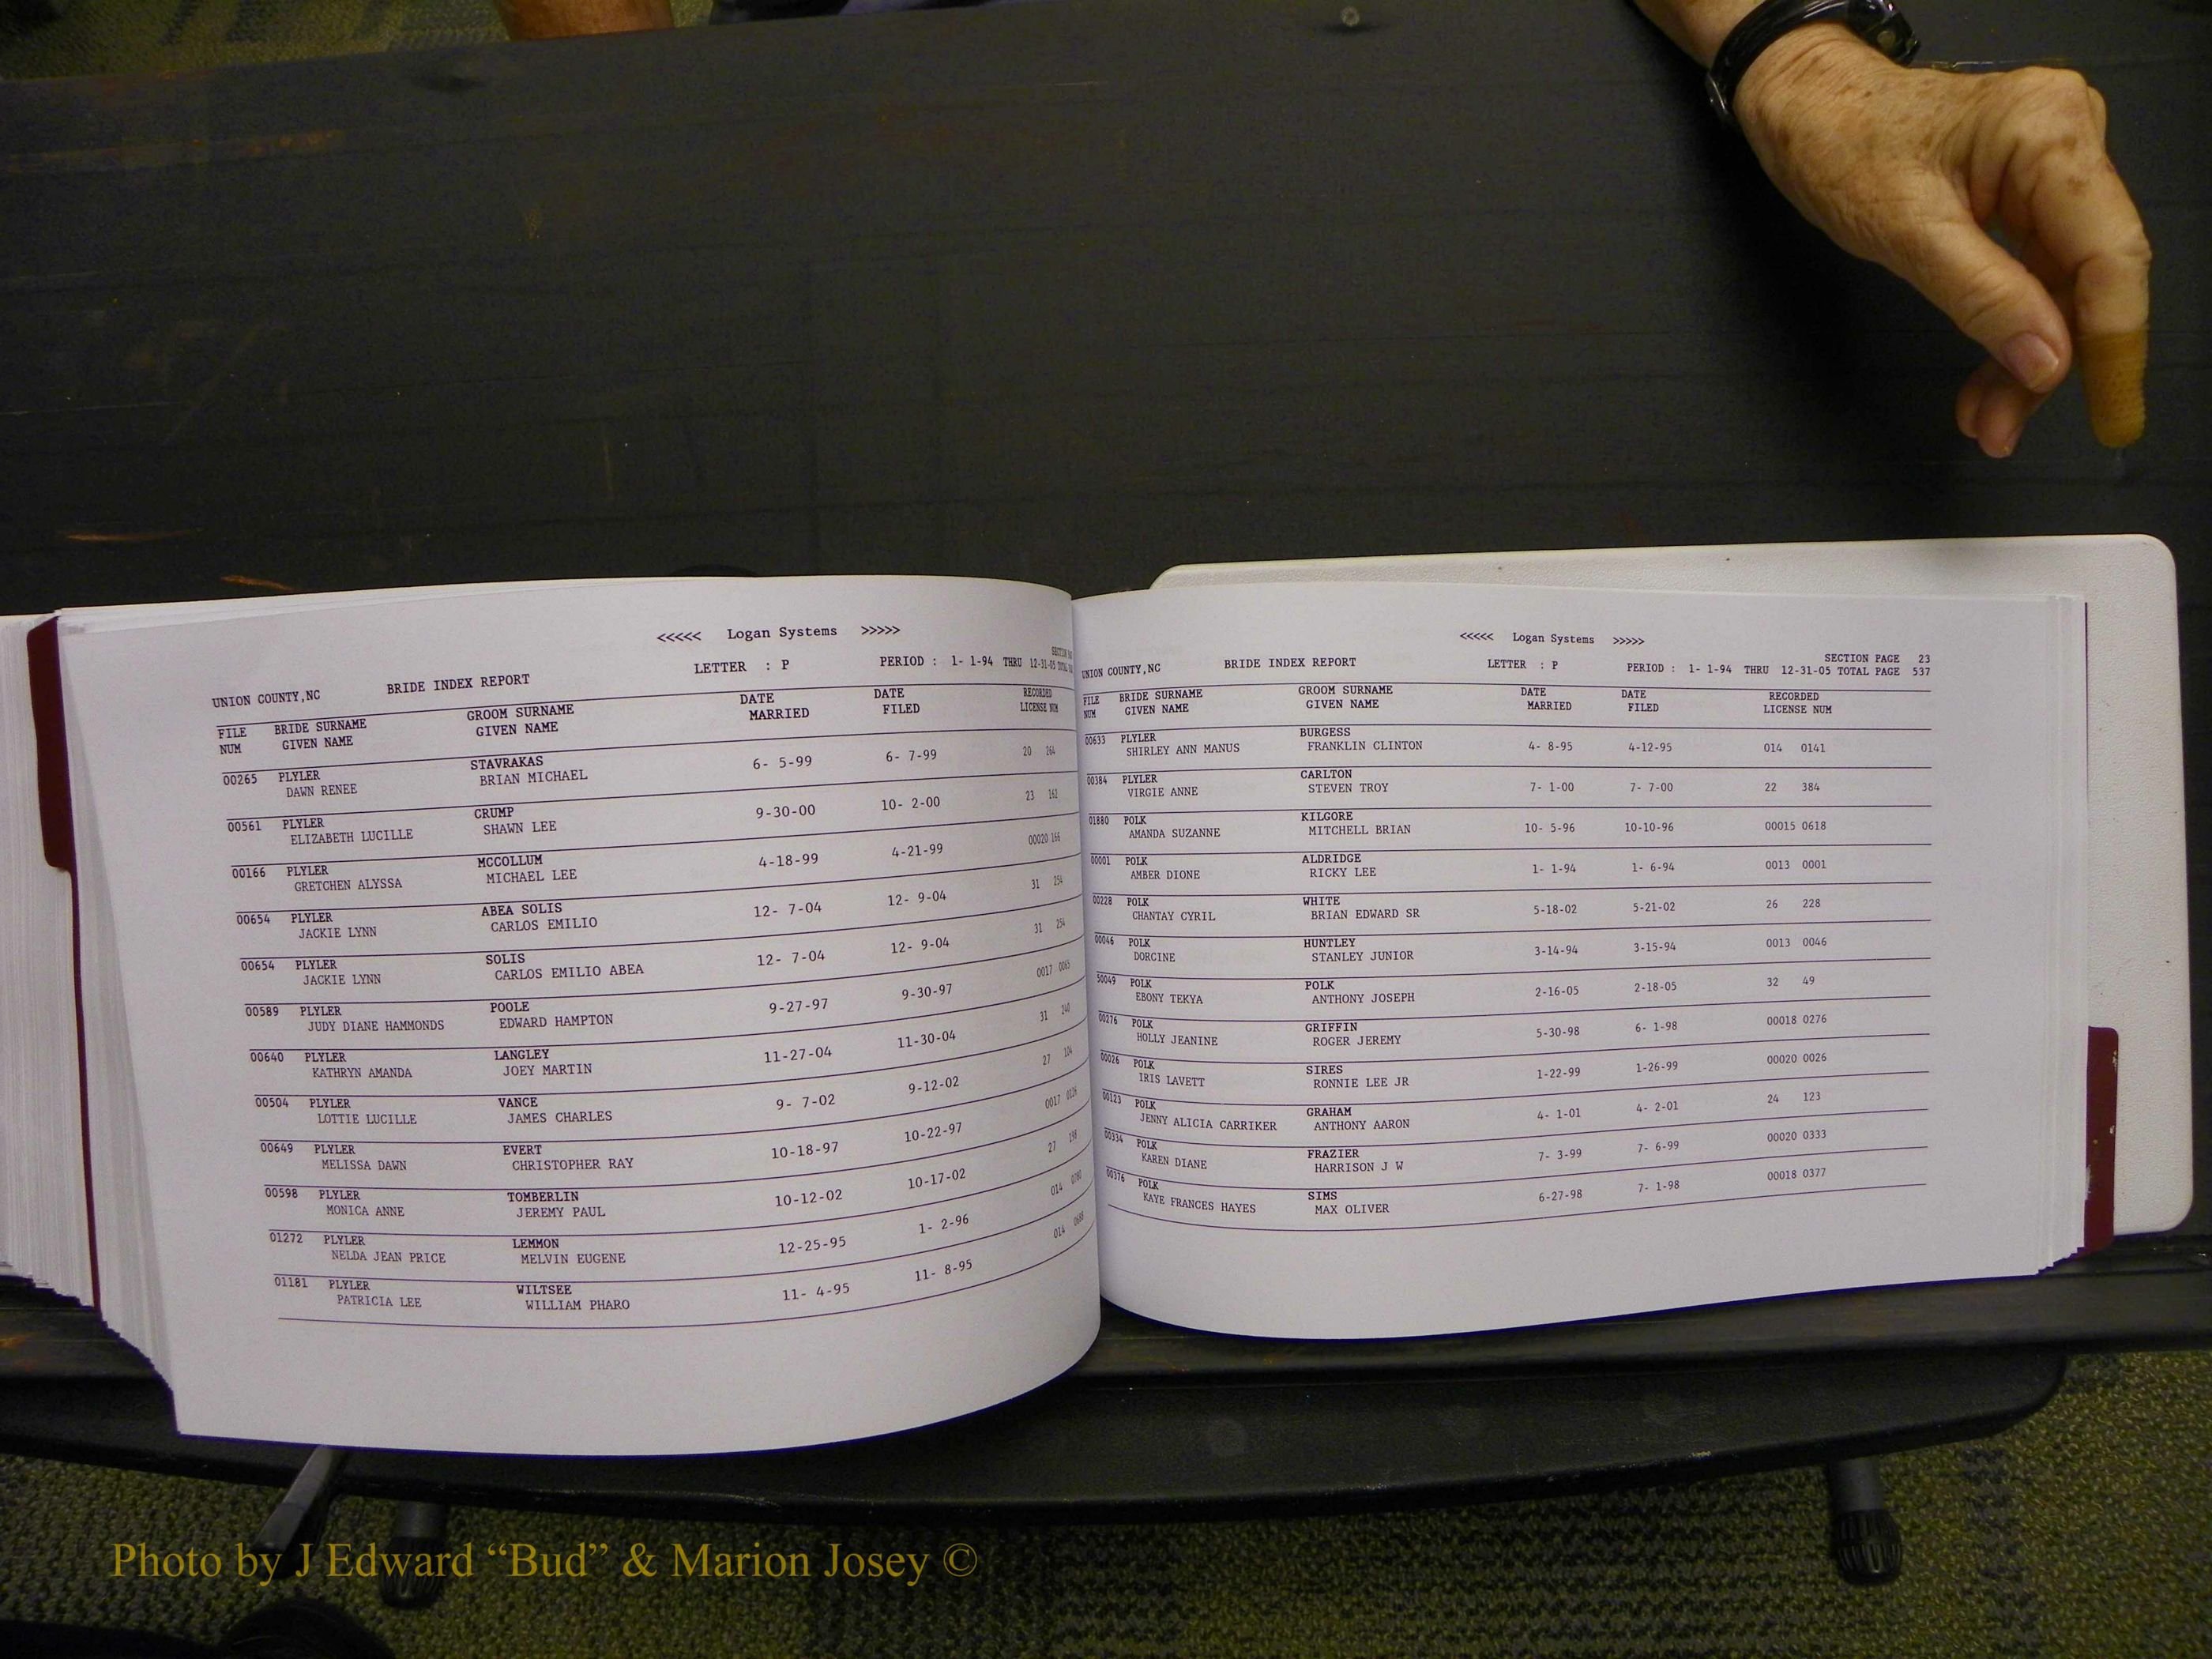 <<<<< Logan Systems >>>>>
UNION COUNTY,NC BRIDE INDEX REPORT LETTER : P PERIOD : 1- 1-94 THRU 12-31-05
FILE BRIDE SURNAME GROOM SURNAME DATE DATE RECORDED
NUM GIVEN NAME GIVEN NAME MARRIED FILED LICENSE NUM
00265 PLYLER STAVRAKAS 6- 5-99 6- 7-99 20 264
DAWN RENEE BRIAN MICHAEL
00561 PLYLER CRUMP 9-30-00 10- 2-00 23 162
ELIZABETH LUCILLE SHAWN LEE
00166 PLYLER MCCOLLUM 4-18-99 4-21-99 00020 166
GRETCHEN ALYSSA MICHAEL LEE
00654 PLYLER ABEA SOLIS 12- 7-04 12- 9-04 31 254
JACKIE LYNN CARLOS EMILIO
00654 PLYLER SOLIS 12- 7-04 12- 9-04 31 254
JACKIE LYNN CARLOS EMILIO ABEA
00589 PLYLER POOLE 9-27-97 9-30-97 0017 0065
JUDY DIANE HAMMONDS EDWARD HAMPTON
00640 PLYLER LANGLEY 11-27-04 11-30-04 31 240
KATHRYN AMANDA JOEY MARTIN
00504 PLYLER VANCE 9- 7-02 9-12-02 27 104
LOTTIE LUCILLE JAMES CHARLES
00649 PLYLER EVERT 10-18-97 10-22-97 0017 0126
MELISSA DAWN CHRISTOPHER RAY
00598 PLYLER TOMBERLIN 10-12-02 10-17-02 27 198
MONICA ANNE JEREMY PAUL
01272 PLYLER LEMMON 12-25-95 1- 2-96 014 0780
NELDA JEAN PRICE MELVIN EUGENE
01181 PLYLER WILTSEE 11- 4-95 11- 8-95 014
PATRICIA LEE WILLIAM PHARO
<<<<< Logan Systems >>>>>
SECTION PAGE 23
UNION COUNTY,NC BRIDE INDEX REPORT LETTER : P PERIOD : 1- 1-94 THRU 12-31-05 TOTAL PAGE 537
FILE BRIDE SURNAME GROOM SURNAME DATE DATE RECORDED
NUM GIVEN NAME GIVEN NAME MARRIED FILED LICENSE NUM
00633 PLYLER BURGESS 4- 8-95 4-12-95 014 0141
SHIRLEY ANN MANUS FRANKLIN CLINTON
00384 PLYLER CARLTON 7- 1-00 7- 7-00 22 384
VIRGIE ANNE STEVEN TROY
01880 POLK KILGORE 10- 5-96 10-10-96 00015 0618
AMANDA SUZANNE MITCHELL BRIAN
00001 POLK ALDRIDGE 1- 1-94 1- 6-94 0013 0001
AMBER DIONE RICKY LEE
00228 POLK WHITE 5-18-02 5-21-02 26 228
CHANTAY CYRIL BRIAN EDWARD SR
00046 POLK HUNTLEY 3-14-94 3-15-94 0013 0046
DORCINE STANLEY JUNIOR
50049 POLK POLK 2-16-05 2-18-05 32 49
EBONY TEKYA ANTHONY JOSEPH
00276 POLK GRIFFIN 5-30-98 6- 1-98 00018 0276
HOLLY JEANINE ROGER JEREMY
00026 POLK SIRES 1-22-99 1-26-99 00020 0026
IRIS LAVETT RONNIE LEE JR
00123 POLK GRAHAM 4- 1-01 4- 2-01 24 123
JENNY ALICIA CARRIKER ANTHONY AARON
00334 POLK FRAZIER 7- 3-99 7- 6-99 00020 0333
KAREN DIANE HARRISON J W
00376 POLK SIMS 6-27-98 7- 1-98 00018 0377
KAYE FRANCES HAYES MAX OLIVER
Photo by J Edward “Bud” & Marion Josey ©